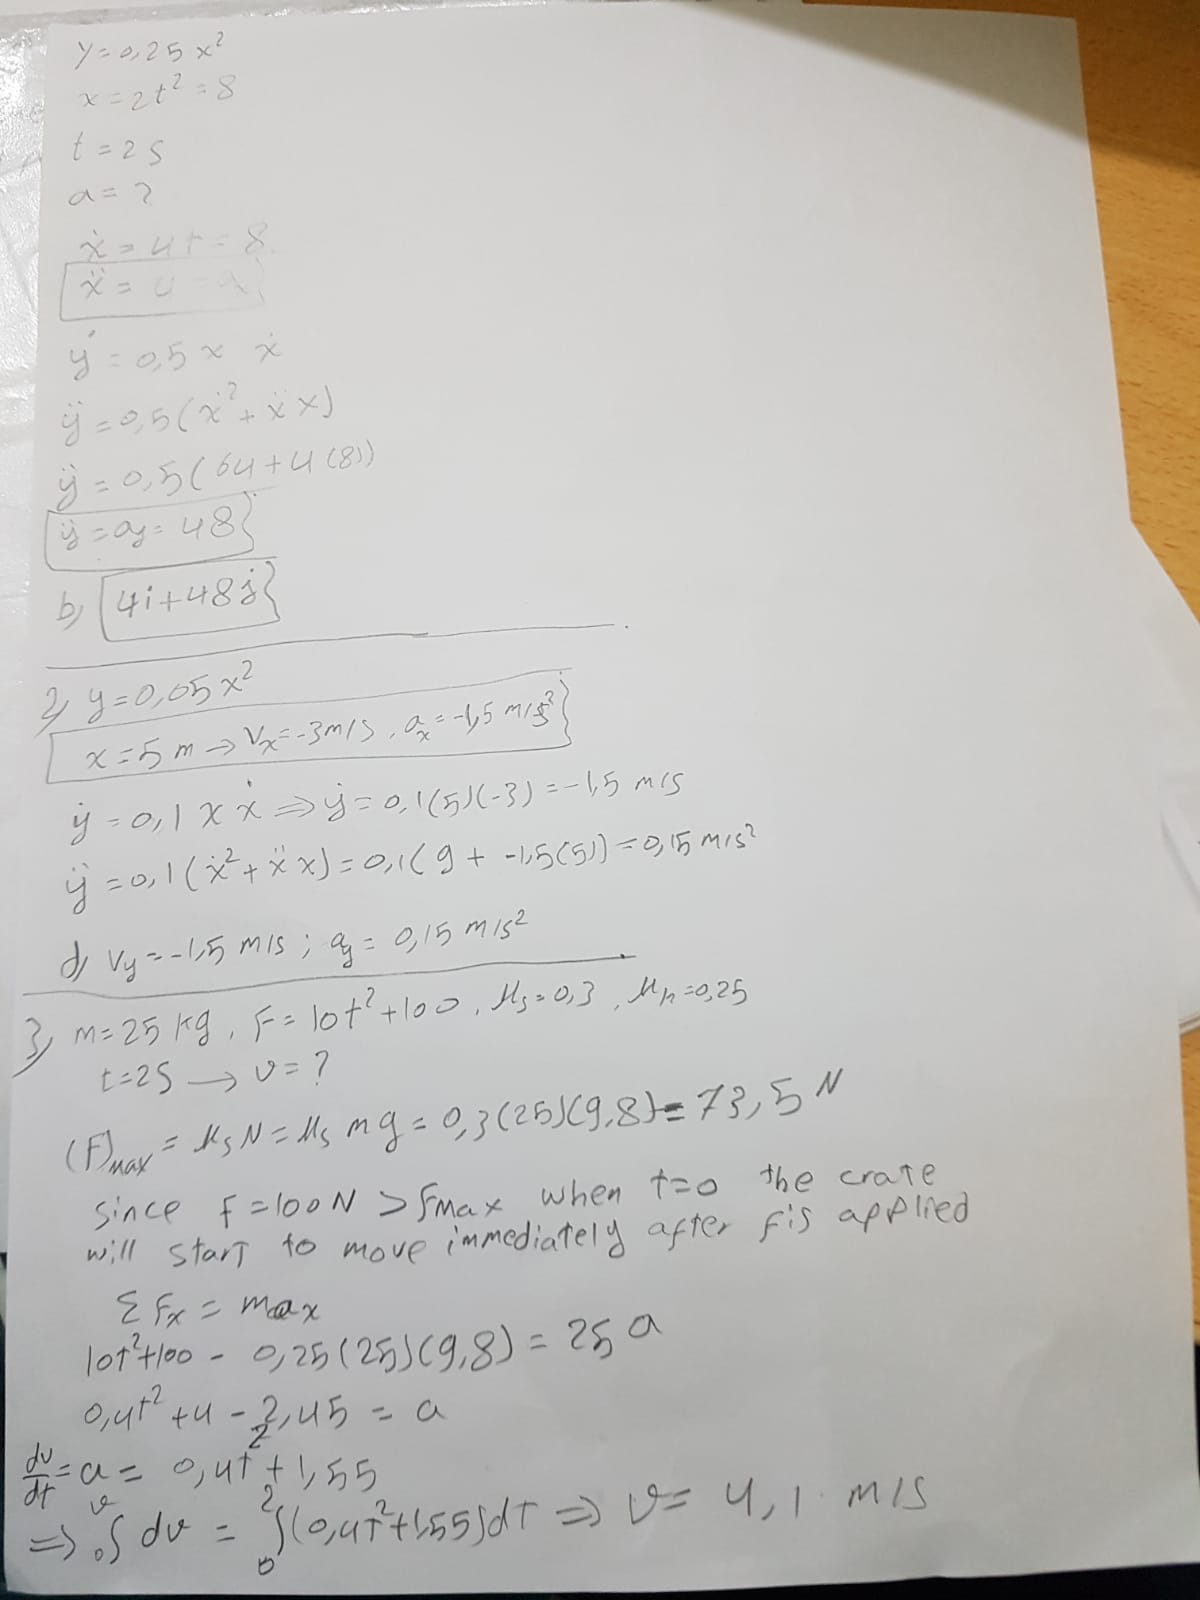 y=0,25 x²
x=2t²=8
t=2s
a=?
ẋ=4t=8
ẍ=4=a
ẏ=0,5x ẋ
ÿ=0,5(ẋ²+ẍx)
ÿ=0,5(64+4(8))
ÿ=ay=48
b) 4i+48j
2) y=0,05x²
x=5m→Vx=-3m/s, ax=-1,5 m/s²
ẏ=0,1xẋ⇒ẏ=0,1(5)(-3)=-1,5 m/s
ÿ=0,1(ẋ²+ẍx)=0,1(9+-1,5(5))=0,15 m/s²
d) Vy=-1,5 m/s; ay=0,15 m/s²
3) m=25 kg, F=10t²+100, Ms=0,3, Mk=0,25
t=2s → v=?
(F)max=MsN=Ms mg=0,3(25)(9,8)=73,5 N
since F=100N >Fmax when t=0 the crate
will start to move immediately after F is applied
ΣFx=max
10t²+100-0,25(25)(9,8)=25a
0,4t²+4-2,45=a
dv/dt=a=0,4t²+1,55
⇒ ₀∫ᵛ dv = ₀∫²(0,4t²+1,55)dt ⇒ v=4,1 m/s